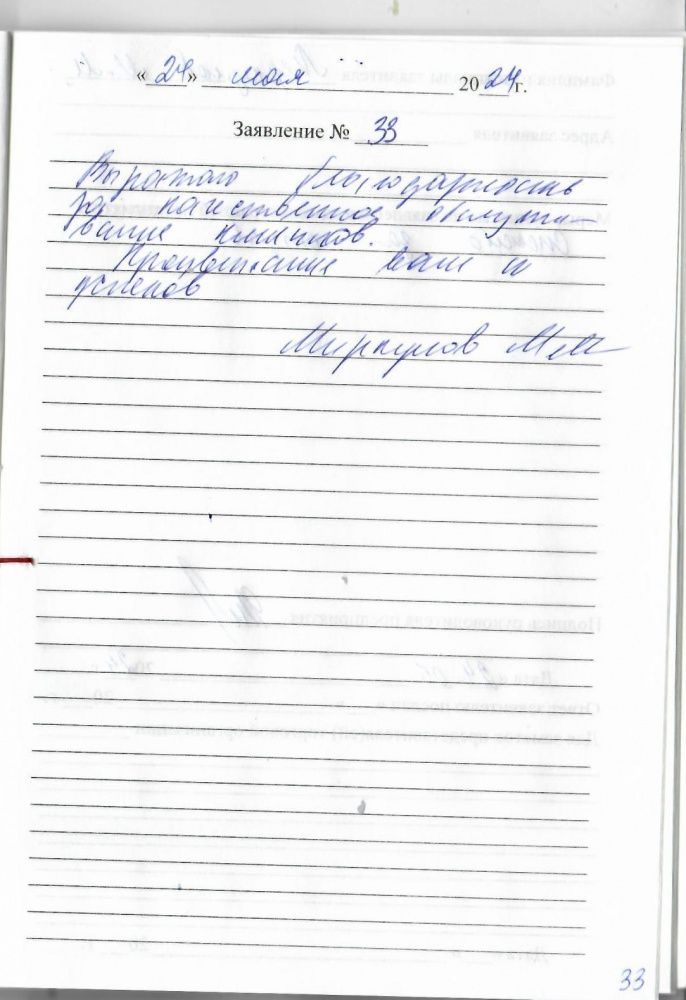 «24» мая 2024г.
Заявление № 33
Выражаю благодарность
за качественное обслужи-
вание клиентов.
Процветания вам и
успехов
Миркулов М.М.
33